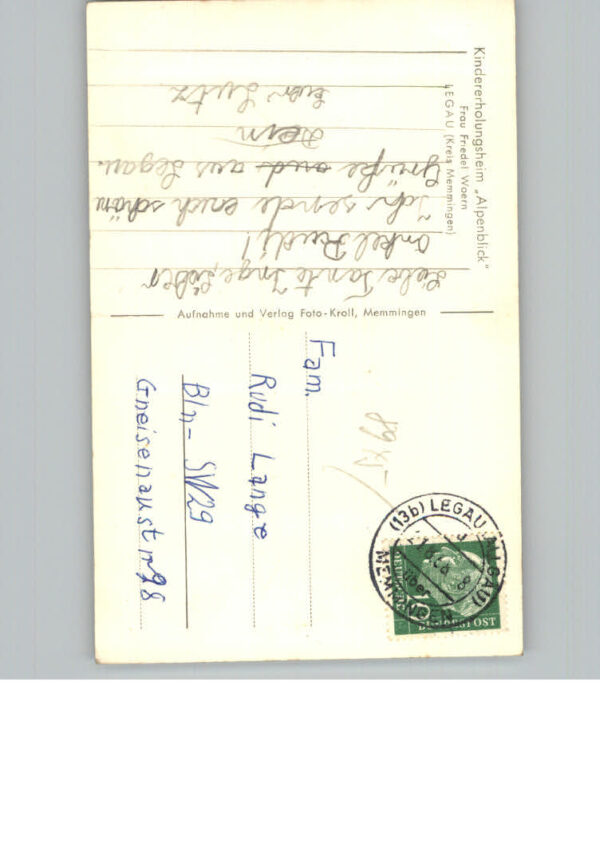 Kindererholungsheim „Alpenblick"
Frau Friedel Woern
LEGAU (Kreis Memmingen)
Liebe Tante Inge, lieber
Onkel Rudi!
Ich sende euch schöne
Grüße and aus Legau.
Dein
euer Lutz
Aufnahme und Verlag Foto-Kroll, Memmingen
Fam.
Rudi Lange
Bln- SW29
Gneisenaustr 98
(13b) LEGAU (ALLGÄU)
über
MEMMINGEN
10
DEUTSCHE
BUNDESPOST